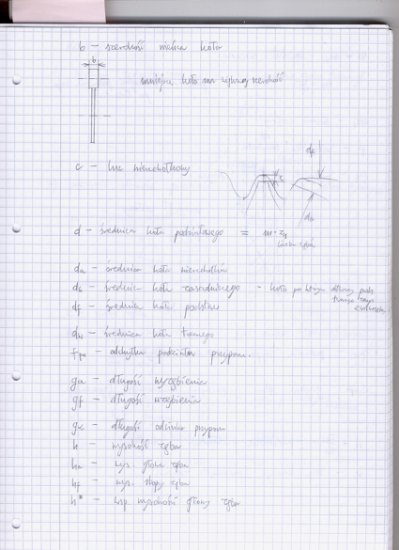 b - szerokość wieńca koła
b
mniejsze koło ma większą szerokość
c - luz wierzchołkowy
c
df
da
d - średnica koła podziałowego = m · z₁
liczba zębów
da - średnica koła wierzchołków
db - średnica koła zasadniczego - koło po którym
df - średnica koła podstaw
dw - średnica koła tocznego
fpe - odchyłka podziałki przypor.
ga - długość wyzębienia
gf - długość wzębienia
gα - długość odcinka przyporu
h - wysokość zęba
ha - wys. głowy zęba
hf - wys. stopy zęba
h* - wsp. wysokości głowy zęba